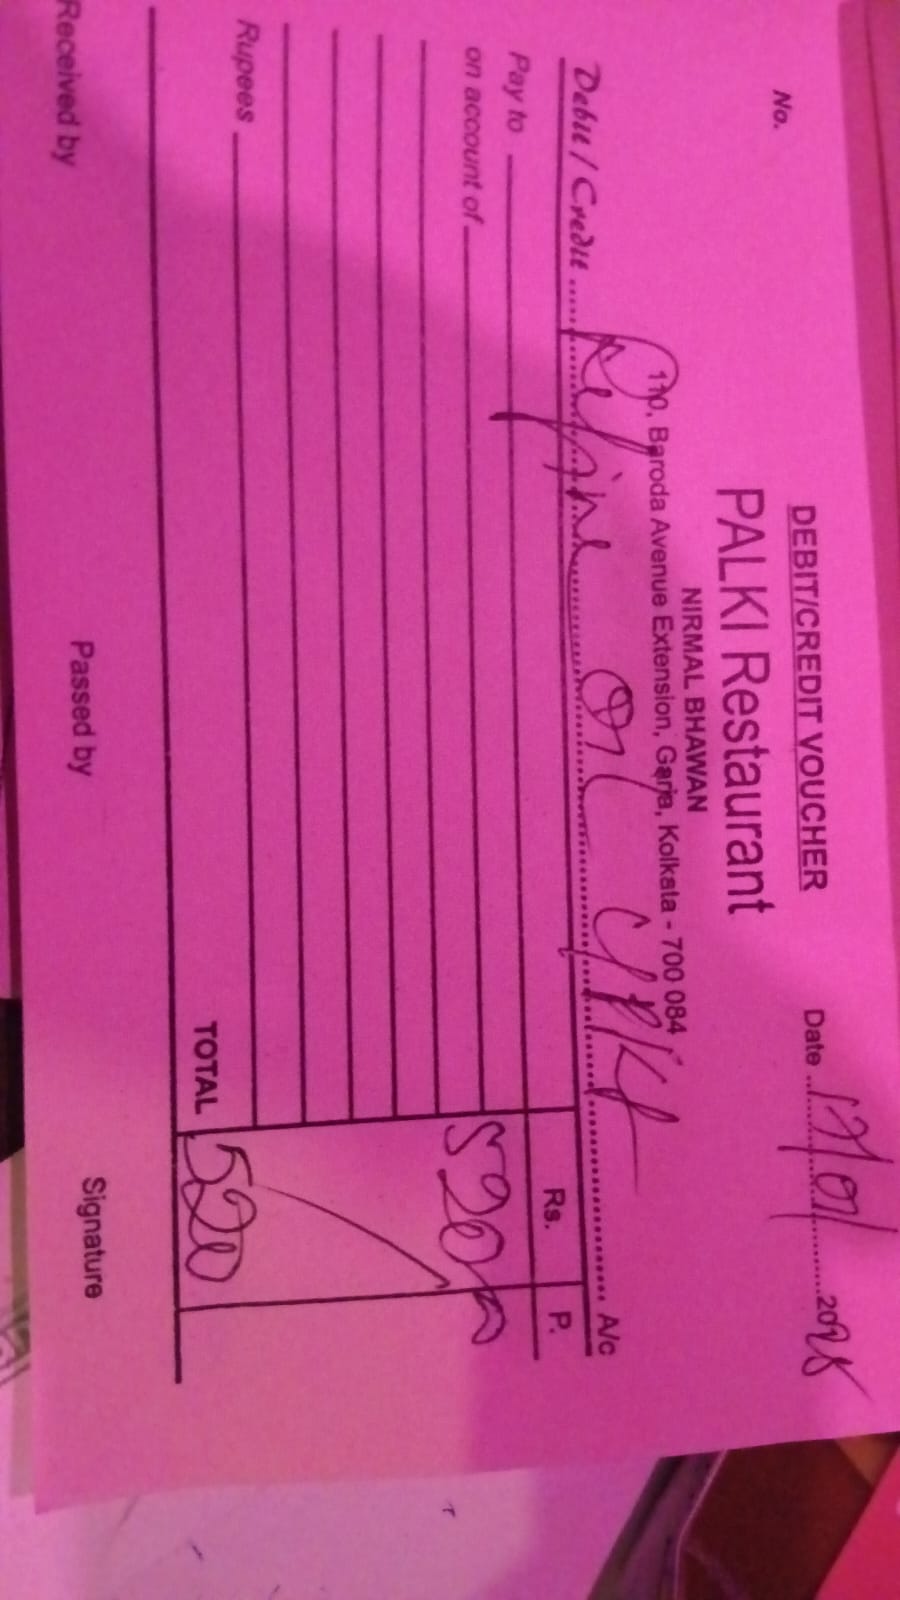 DEBIT/CREDIT VOUCHER
No.
Date 17/01/2025
PALKI Restaurant
NIRMAL BHAWAN
110, Baroda Avenue Extension, Garia, Kolkata - 700 084
Debit / Credit ...... Refine oil ...... A/c
Pay to
Rs. P.
on account of
520
Rupees
TOTAL 520
Received by Passed by Signature